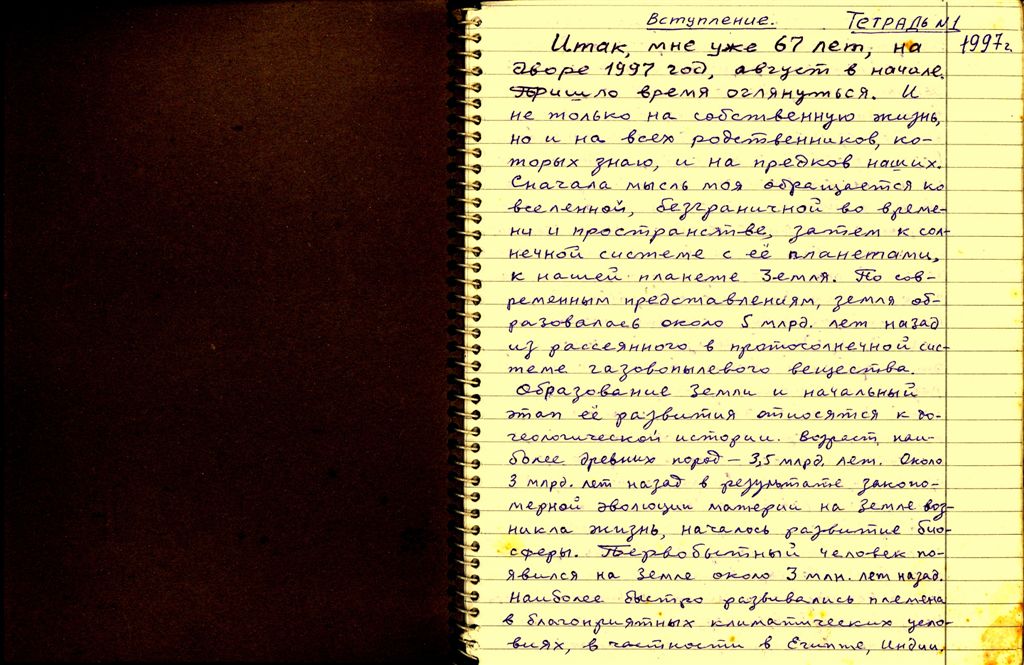 Вступление. Тетрадь №1
Итак, мне уже 67 лет, на 1997 г.
дворе 1997 год, август в начале.
Пришло время оглянуться. И
не только на собственную жизнь,
но и на всех родственников, ко-
торых знаю, и на предков наших.
Сначала мысль моя обращается ко
вселенной, безграничной во време-
ни и пространстве, затем к сол-
нечной системе с её планетами,
к нашей планете Земля. По сов-
ременным представлениям, земля об-
разовалась около 5 млрд. лет назад
из рассеянного в протосолнечной сис-
теме газовопылевого вещества.
Образование Земли и начальный
этап её развития относятся к до-
геологической истории. Возраст наи-
более древних пород – 3,5 млрд. лет. Около
3 млрд. лет назад в результате законо-
мерной эволюции материи на Земле воз-
никла жизнь, началось развитие био-
сферы. Первобытный человек по-
явился на Земле около 3 млн. лет назад.
Наиболее быстро развивались племена
в благоприятных климатических усло-
виях, в частности в Египте, Индии,